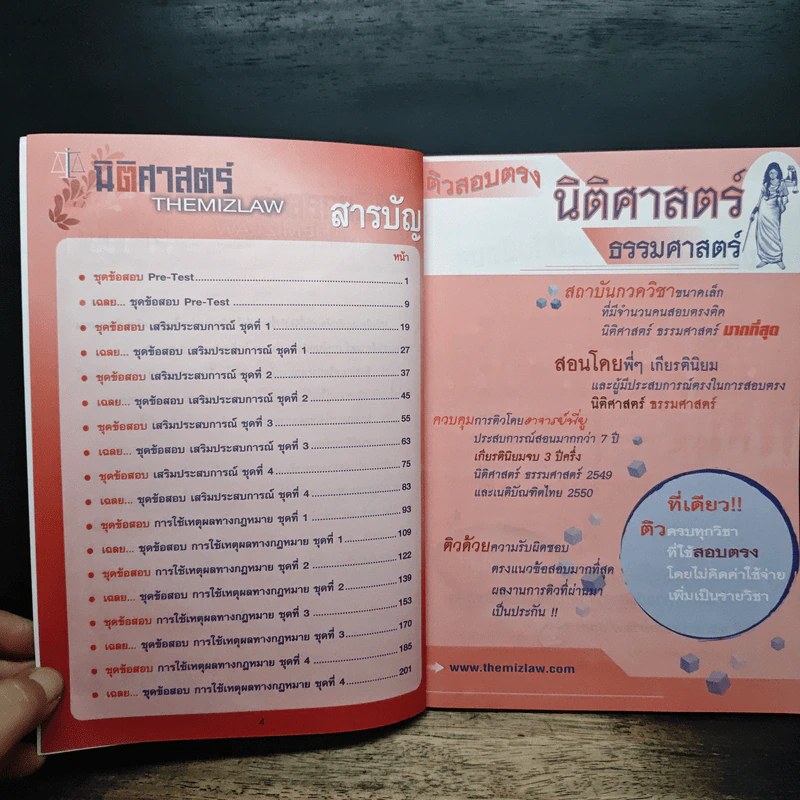 นิติศาสตร์
THEMIZLAW
สารบัญ
หน้า
ชุดข้อสอบ Pre-Test 1
เฉลย... ชุดข้อสอบ Pre-Test 9
ชุดข้อสอบ เสริมประสบการณ์ ชุดที่ 1 19
เฉลย... ชุดข้อสอบ เสริมประสบการณ์ ชุดที่ 1 27
ชุดข้อสอบ เสริมประสบการณ์ ชุดที่ 2 37
เฉลย... ชุดข้อสอบ เสริมประสบการณ์ ชุดที่ 2 45
ชุดข้อสอบ เสริมประสบการณ์ ชุดที่ 3 55
เฉลย... ชุดข้อสอบ เสริมประสบการณ์ ชุดที่ 3 63
ชุดข้อสอบ เสริมประสบการณ์ ชุดที่ 4 75
เฉลย... ชุดข้อสอบ เสริมประสบการณ์ ชุดที่ 4 83
ชุดข้อสอบ การใช้เหตุผลทางกฎหมาย ชุดที่ 1 93
เฉลย... ชุดข้อสอบ การใช้เหตุผลทางกฎหมาย ชุดที่ 1 109
ชุดข้อสอบ การใช้เหตุผลทางกฎหมาย ชุดที่ 2 122
เฉลย... ชุดข้อสอบ การใช้เหตุผลทางกฎหมาย ชุดที่ 2 139
ชุดข้อสอบ การใช้เหตุผลทางกฎหมาย ชุดที่ 3 153
เฉลย... ชุดข้อสอบ การใช้เหตุผลทางกฎหมาย ชุดที่ 3 170
ชุดข้อสอบ การใช้เหตุผลทางกฎหมาย ชุดที่ 4 185
เฉลย... ชุดข้อสอบ การใช้เหตุผลทางกฎหมาย ชุดที่ 4 201
4
ติวสอบตรง
นิติศาสตร์
ธรรมศาสตร์
สถาบันกวดวิชาขนาดเล็ก
ที่มีจำนวนคนสอบตรงติด
นิติศาสตร์ ธรรมศาสตร์ มากที่สุด
สอนโดยพี่ๆ เกียรตินิยม
และผู้มีประสบการณ์ตรงในการสอบตรง
นิติศาสตร์ ธรรมศาสตร์
ควบคุมการติวโดยอาจารย์พี่ยู
ประสบการณ์สอนมากกว่า 7 ปี
เกียรตินิยมจบ 3 ปีครึ่ง
นิติศาสตร์ ธรรมศาสตร์ 2549
และเนติบัณฑิตไทย 2550
ติวด้วยความรับผิดชอบ
ตรงแนวข้อสอบมากที่สุด
ผลงานการติวที่ผ่านมา
เป็นประกัน !!
ที่เดียว!!
ติวครบทุกวิชา
ที่ใช้สอบตรง
โดยไม่คิดค่าใช้จ่าย
เพิ่มเป็นรายวิชา
www.themizlaw.com